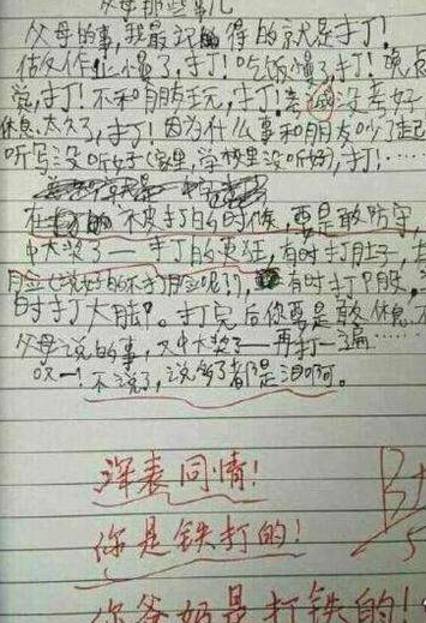 父母那些事儿
父母的事,我最记得的就是打!
作业慢了,打!吃饭慢了,打!晚
觉,打!不和朋友玩,打!考没考好
休息太久了,打!因为什么事和朋友吵了起
听写没听好(家里,学校里没听好),打!……
在被打的时候,要是敢防守,
中大奖了——打的更狂,有时打肚子,
脸(说好的不打脸呢!),有时打屁股,
时打大腿。打完后你要是敢休息,不
父母说的事,又中大奖了——再打一遍……
哎——!不说了,说多了都是泪啊。
深表同情!
你是铁打的!
你爸妈是打铁的!
B+